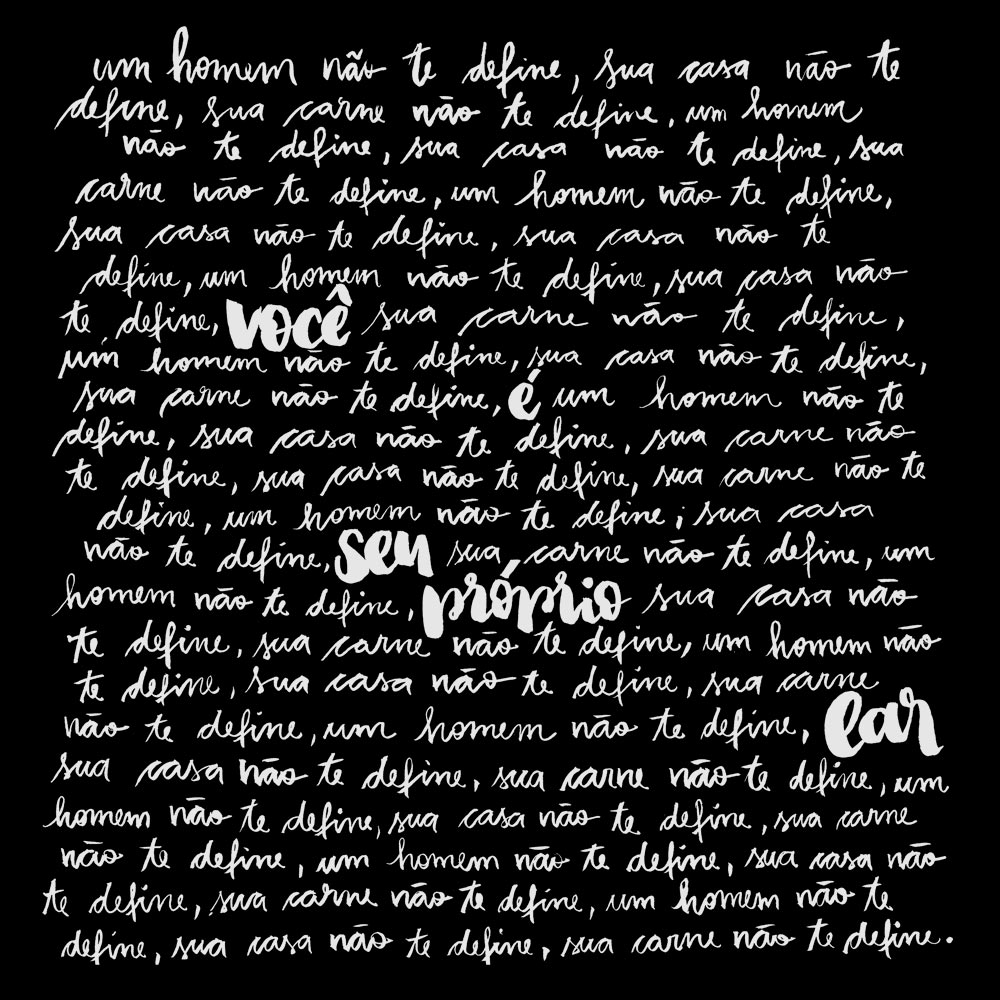 um homem não te define, sua casa não te
define, sua carne não te define, um homem
não te define, sua casa não te define, sua
carne não te define, um homem não te define,
sua casa não te define, sua casa não te
define, um homem não te define, sua casa não
te define, você sua carne não te define,
um homem não te define, sua casa não te define,
sua carne não te define, é um homem não te
define, sua casa não te define, sua carne não
te define, sua casa não te define, sua carne não te
define, um homem não te define, sua casa
não te define, seu sua carne não te define, um
homem não te define, próprio sua casa não
te define, sua carne não te define, um homem não
te define, sua casa não te define, sua carne
não te define, um homem não te define, lar
sua casa não te define, sua carne não te define, um
homem não te define, sua casa não te define, sua carne
não te define, um homem não te define, sua casa não
te define, sua carne não te define, um homem não te
define, sua casa não te define, sua carne não te define.